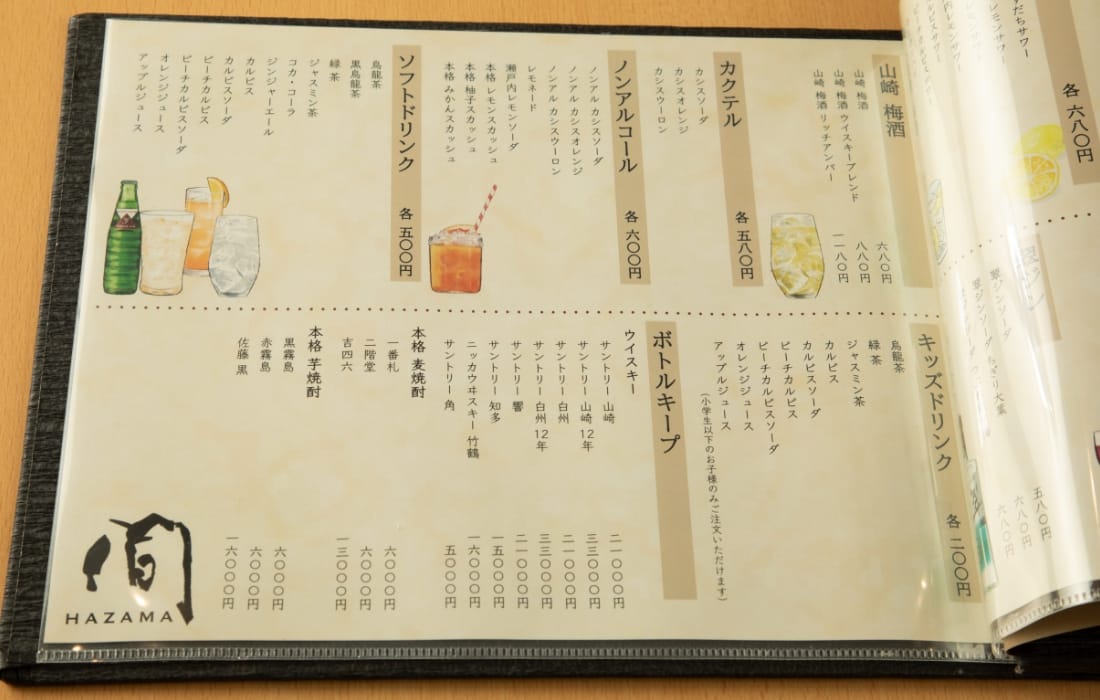 だちサワー
レモンサワー
各 六八〇円
山崎 梅酒
山崎 梅酒 六八〇円
山崎 梅酒 ウイスキーブレンド 八八〇円
山崎 梅酒 リッチアンバー 一一八〇円
カクテル 各 五八〇円
カシスソーダ
カシスオレンジ
カシスウーロン
ノンアルコール 各 六〇〇円
ノンアルカシスソーダ
ノンアルカシスオレンジ
ノンアルカシスウーロン
レモネード
瀬戸内レモンソーダ
本格 レモンスカッシュ
本格 柚子スカッシュ
本格 みかんスカッシュ
ソフトドリンク 各 五〇〇円
烏龍茶
黒烏龍茶
緑茶
ジャスミン茶
コカ・コーラ
ジンジャーエール
カルピス
カルピスソーダ
ピーチカルピス
ピーチカルピスソーダ
オレンジジュース
アップルジュース
翠ジンソーダ
五八〇円
六八〇円
六八〇円
キッズドリンク 各 二〇〇円
烏龍茶
緑茶
ジャスミン茶
カルピス
カルピスソーダ
ピーチカルピス
ピーチカルピスソーダ
オレンジジュース
アップルジュース
(小学生以下のお子様のみご注文いただけます)
ボトルキープ
ウイスキー
サントリー 山崎 二一〇〇〇円
サントリー 山崎 12年 三三〇〇〇円
サントリー 白州 二一〇〇〇円
サントリー 白州 12年 三三〇〇〇円
サントリー 響 二一〇〇〇円
サントリー 知多 一五〇〇〇円
ニッカウヰスキー 竹鶴 一六〇〇〇円
サントリー 角 五〇〇〇円
本格 麦焼酎
一番札 六〇〇〇円
二階堂 六〇〇〇円
吉四六 一三〇〇〇円
本格 芋焼酎
黒霧島 六〇〇〇円
赤霧島 六〇〇〇円
佐藤 黒 一六〇〇〇円
間
HAZAMA